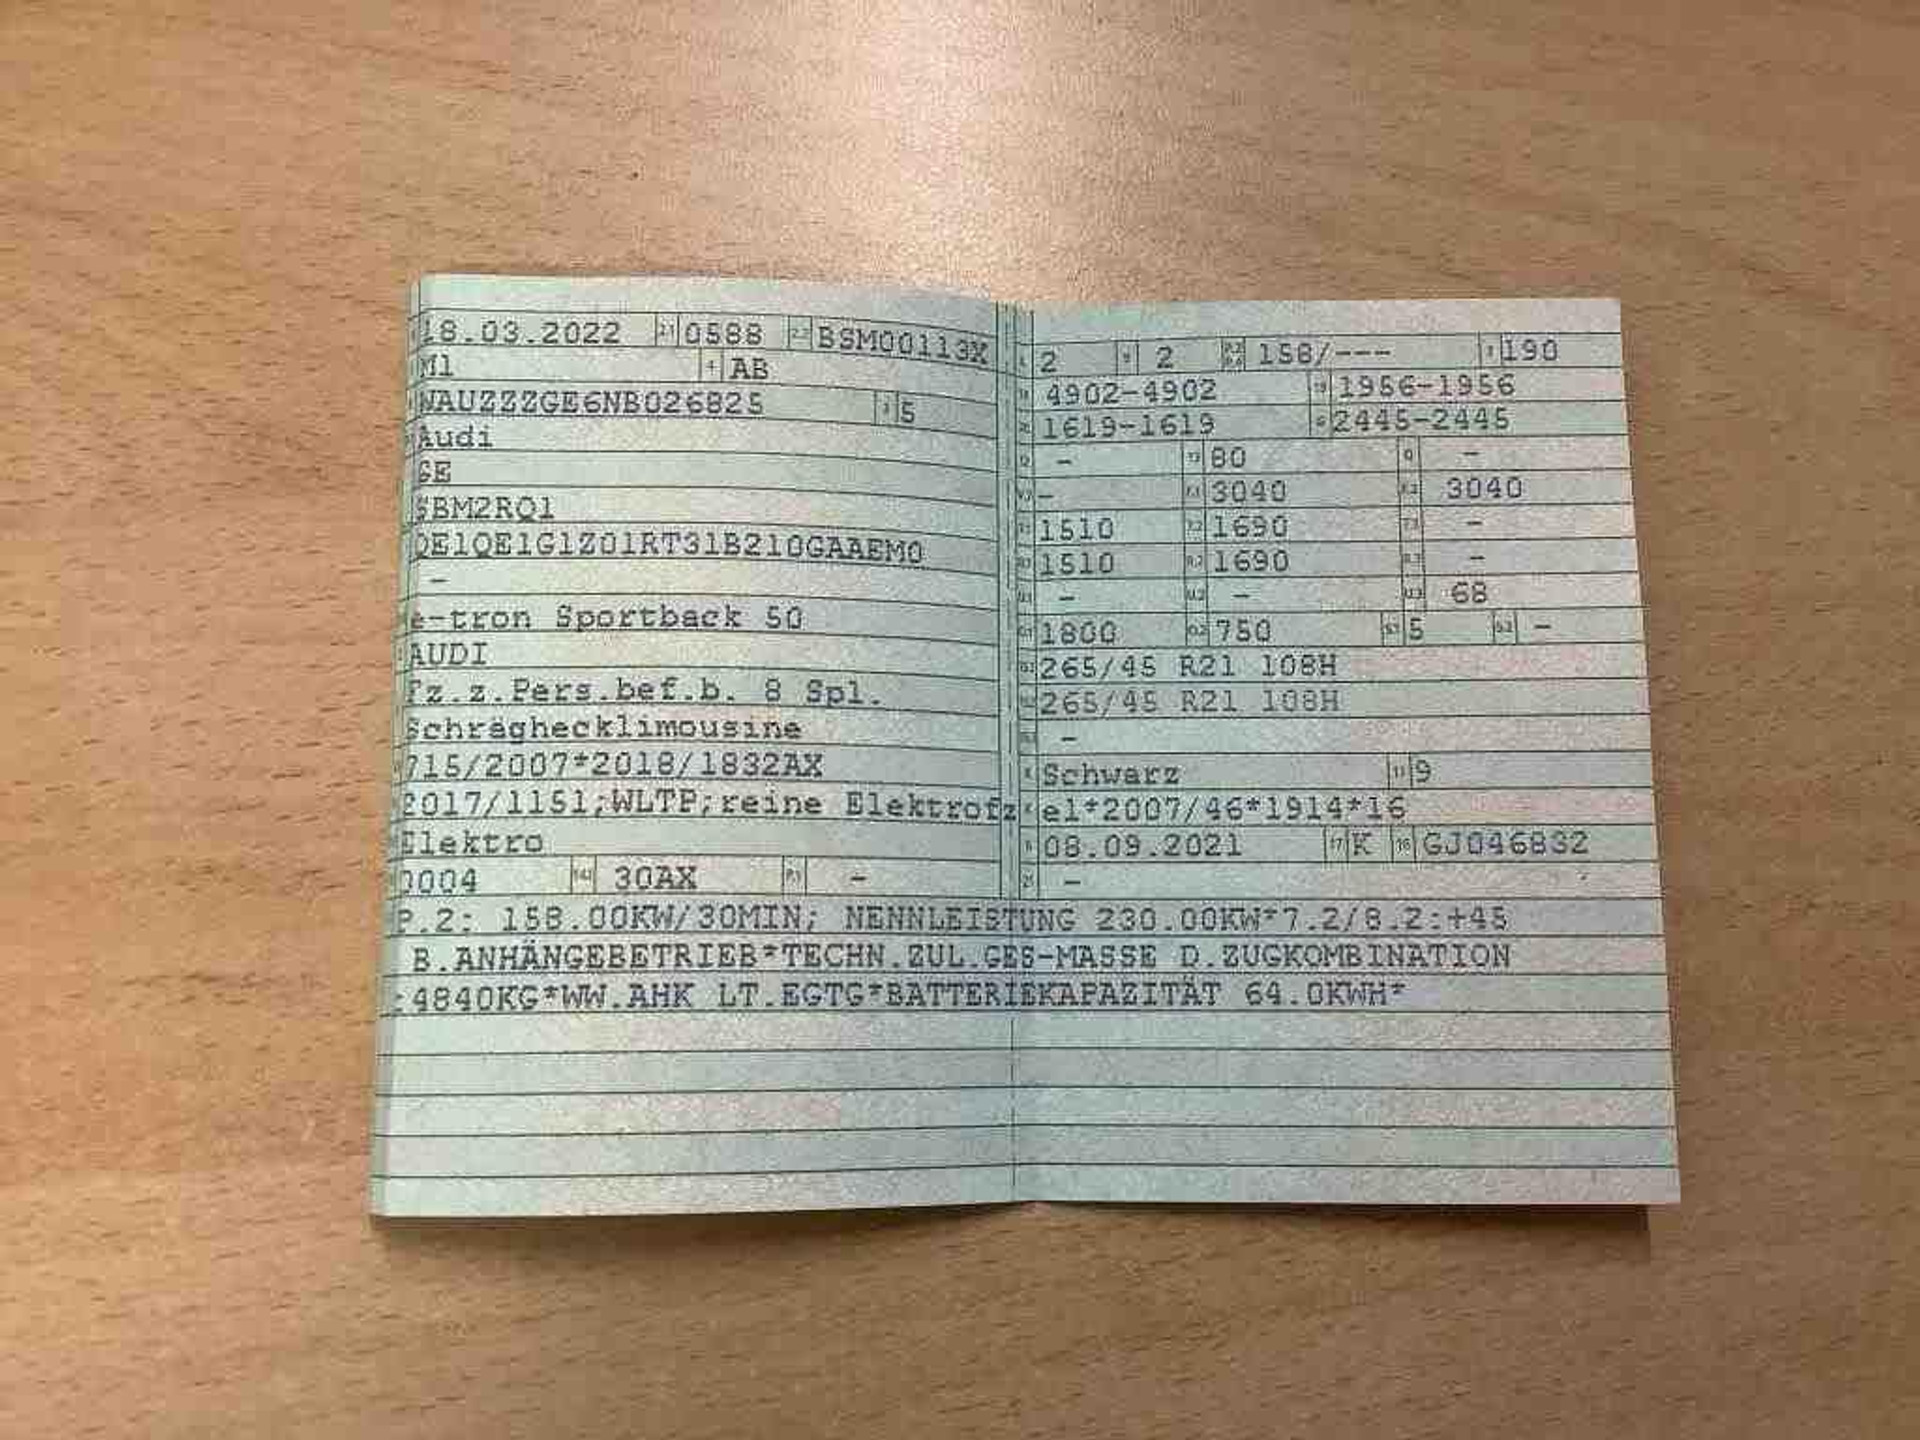 18.03.2022 2.1 0588 2.2 BSM00113X
M1 4 AB
WAUZZZGE6NB026825 3 5
Audi
GE
SBM2RQ1
QE1QE1G1Z01RT31B210GAAEM0
-
e-tron Sportback 50
AUDI
Fz.z.Pers.bef.b. 8 Spl.
Schräghecklimousine
715/2007*2018/1832AX
2017/1151;WLTP;reine Elektrofz
Elektro
0004 14.1 30AX P.1 -
L 2 9 2 P.2 P.4 158/--- T 190
18 4902-4902 19 1956-1956
20 1619-1619 G 2445-2445
12 - 13 80 Q -
V.7 - F.1 3040 F.2 3040
7.1 1510 7.2 1690 7.3 -
8.1 1510 8.2 1690 8.3 -
U.1 - U.2 - U.3 68
O.1 1800 O.2 750 S.1 5 S.2 -
15.1 265/45 R21 108H
15.2 265/45 R21 108H
15.3 -
R Schwarz 11 9
K e1*2007/46*1914*16
6 08.09.2021 17 K 16 GJ046832
21 -
P.2: 158.00KW/30MIN; NENNLEISTUNG 230.00KW*7.2/8.2:+45
B.ANHÄNGEBETRIEB*TECHN.ZUL.GES-MASSE D.ZUGKOMBINATION
:4840KG*WW.AHK LT.EGTG*BATTERIEKAPAZITÄT 64.0KWH*